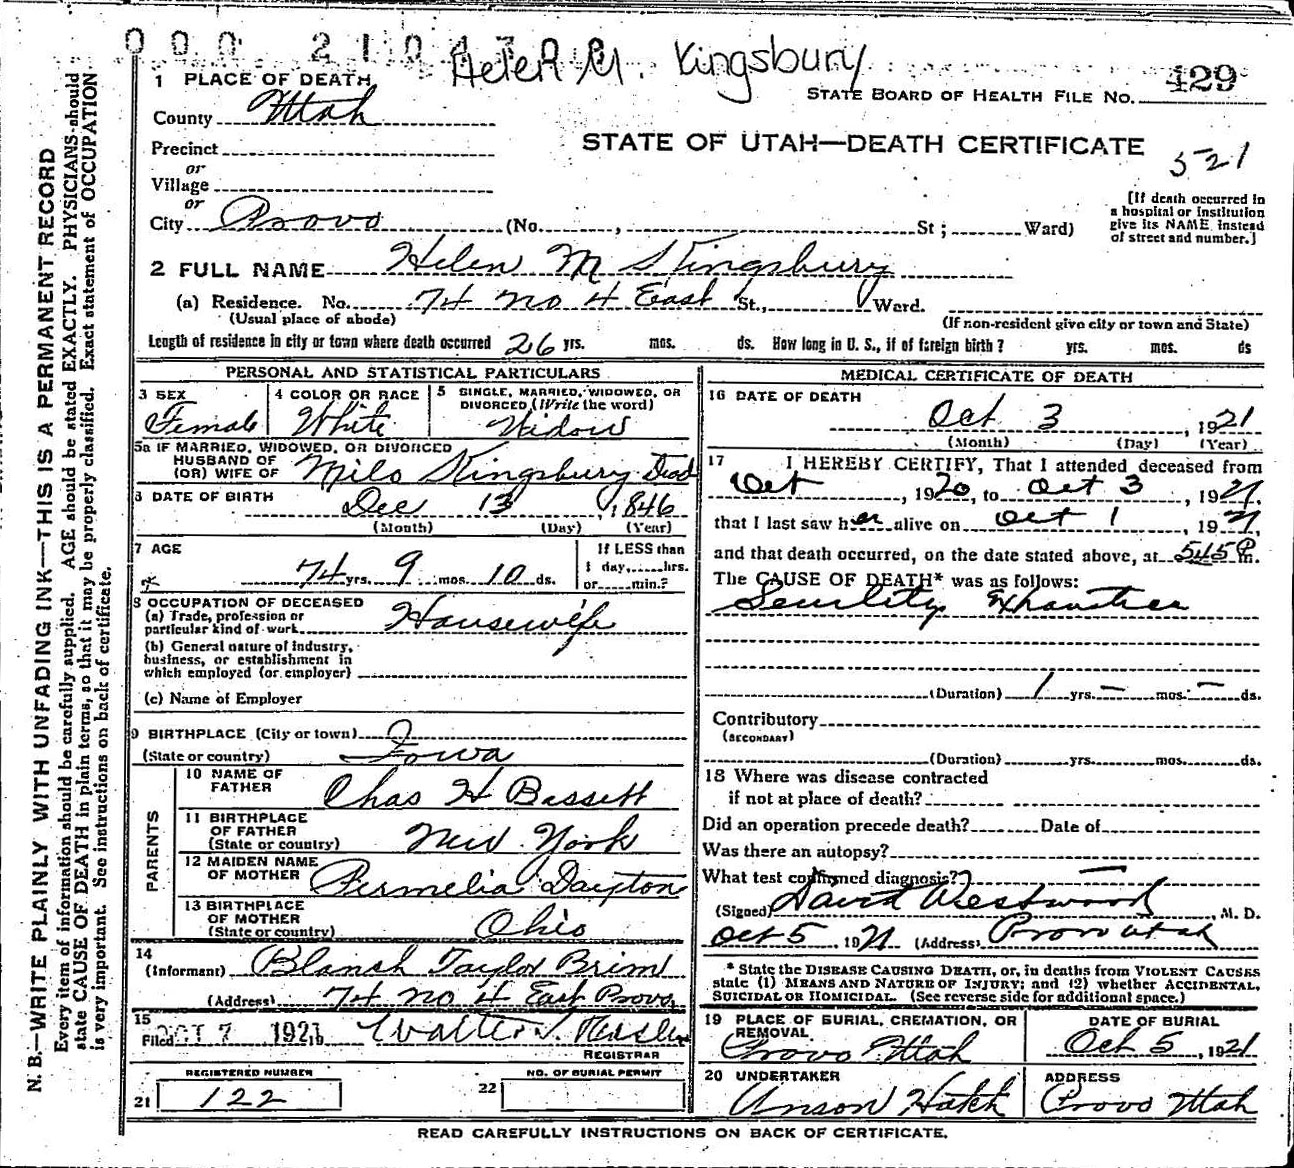 000 21047 0 Helen M. Kingsbury
1 PLACE OF DEATH
STATE BOARD OF HEALTH FILE NO. 429
County Utah
STATE OF UTAH—DEATH CERTIFICATE 521
Precinct
or
Village
or
City Provo (No. , St ; Ward)
[If death occurred in
a hospital or institution
give its NAME instead
of street and number.]
2 FULL NAME Helen M Kingsbury
(a) Residence. No. 74 no 4 East St., Ward.
(Usual place of abode)
(If non-resident give city or town and State)
Length of residence in city or town where death occurred 26 yrs. mos. ds. How long in U. S., if of foreign birth? yrs. mos. ds
PERSONAL AND STATISTICAL PARTICULARS
3 SEX
Female
4 COLOR OR RACE
White
5 SINGLE, MARRIED, WIDOWED, OR
DIVORCED (Write the word)
Widow
5a IF MARRIED, WIDOWED, OR DIVORCED
HUSBAND OF
(OR) WIFE OF Milo Kingsbury Dead
6 DATE OF BIRTH
Dec 13, 1846
(Month) (Day) (Year)
7 AGE
74 yrs. 9 mos. 10 ds.
If LESS than
1 day, hrs.
or min.?
8 OCCUPATION OF DECEASED
(a) Trade, profession or
particular kind of work Housewife
(b) General nature of industry,
business, or establishment in
which employed (or employer)
(c) Name of Employer
9 BIRTHPLACE (City or town)
(State or country) Iowa
PARENTS
10 NAME OF
FATHER Chas H Bassett
11 BIRTHPLACE
OF FATHER
(State or country) New York
12 MAIDEN NAME
OF MOTHER Permelia Dayton
13 BIRTHPLACE
OF MOTHER
(State or country) Ohio
14
(Informant) Blanch Taylor Brim
(Address) 74 no 4 East Provo
15
Filed OCT 7 1921 Walter T.
REGISTRAR
REGISTERED NUMBER
21 122
NO. OF BURIAL PERMIT
22
MEDICAL CERTIFICATE OF DEATH
16 DATE OF DEATH
Oct 3, 1921
(Month) (Day) (Year)
17 I HEREBY CERTIFY, That I attended deceased from
Oct, 1920, to Oct 3, 1921,
that I last saw her alive on Oct 1, 1921
and that death occurred, on the date stated above, at 545 P m.
The CAUSE OF DEATH* was as follows:
Senility Exhaustion
(Duration) 1 yrs. — mos. — ds.
Contributory
(SECONDARY)
(Duration) yrs. mos. ds.
18 Where was disease contracted
if not at place of death?
Did an operation precede death? Date of
Was there an autopsy?
What test confirmed diagnosis? —
(Signed) David Westwood, M. D.
Oct 5, 1921 (Address) Provo Utah
* State the DISEASE CAUSING DEATH, or, in deaths from VIOLENT CAUSES
state (1) MEANS AND NATURE OF INJURY; and (2) whether ACCIDENTAL,
SUICIDAL OR HOMICIDAL. (See reverse side for additional space.)
19 PLACE OF BURIAL, CREMATION, OR
REMOVAL
Provo Utah
DATE OF BURIAL
Oct 5, 1921
20 UNDERTAKER
Anson Hatch
ADDRESS
Provo Utah
READ CAREFULLY INSTRUCTIONS ON BACK OF CERTIFICATE.
N. B.—WRITE PLAINLY WITH UNFADING INK—THIS IS A PERMANENT RECORD
Every item of information should be carefully supplied. AGE should be stated EXACTLY. PHYSICIANS should
state CAUSE OF DEATH in plain terms, so that it may be properly classified. Exact statement of OCCUPATION
is very important. See instructions on back of certificate.